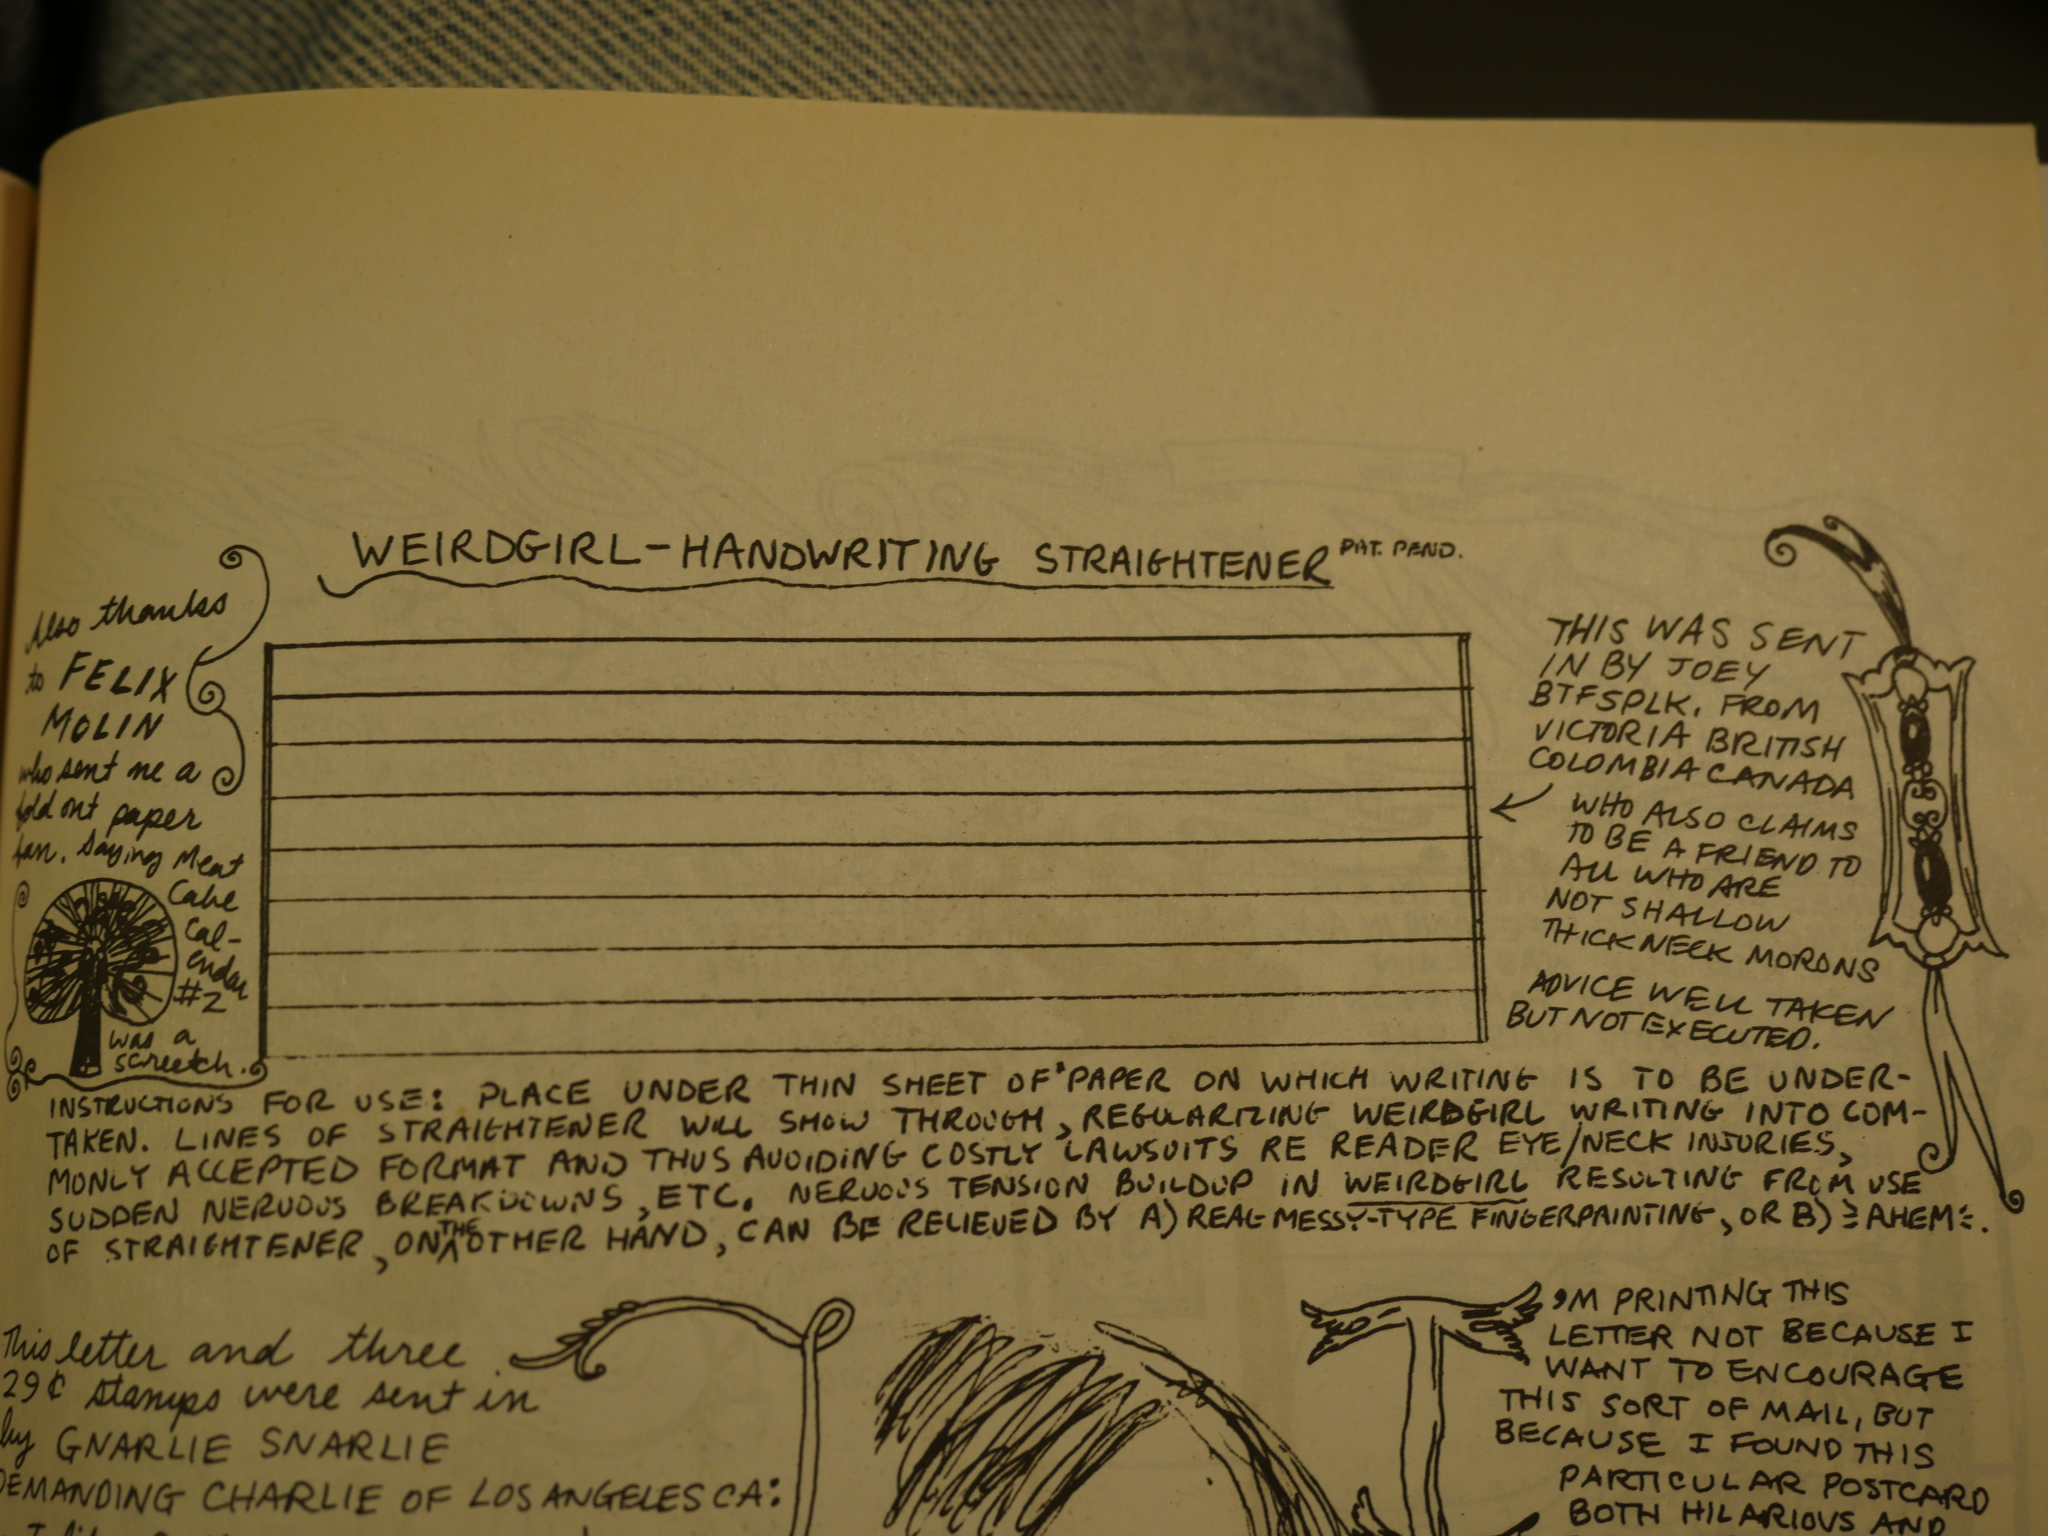 WEIRDGIRL-HANDWRITING STRAIGHTENER PAT. PEND.
Also thanks
to FELIX
MOLIN
who sent me a
fold out paper
fan. Saying Meat
Cake
Cal-
endar
#2
was a
screetch.
THIS WAS SENT
IN BY JOEY
BTFSPLK, FROM
VICTORIA BRITISH
COLOMBIA CANADA
WHO ALSO CLAIMS
TO BE A FRIEND TO
ALL WHO ARE
NOT SHALLOW
THICK NECK MORONS
ADVICE WELL TAKEN
BUT NOT EXECUTED.
INSTRUCTIONS FOR USE: PLACE UNDER THIN SHEET OF PAPER ON WHICH WRITING IS TO BE UNDER-
TAKEN. LINES OF STRAIGHTENER WILL SHOW THROUGH, REGULARIZING WEIRDGIRL WRITING INTO COM-
MONLY ACCEPTED FORMAT AND THUS AVOIDING COSTLY LAWSUITS RE READER EYE/NECK INJURIES,
SUDDEN NERVOUS BREAKDOWNS, ETC. NERVOUS TENSION BUILDUP IN WEIRDGIRL RESULTING FROM USE
OF STRAIGHTENER, ON THE OTHER HAND, CAN BE RELIEVED BY A) REAL MESSY-TYPE FINGERPAINTING, OR B) ≥AHEM≤.
This letter and three
29¢ stamps were sent in
by GNARLIE SNARLIE
DEMANDING CHARLIE OF LOS ANGELES CA:
I'M PRINTING THIS
LETTER NOT BECAUSE I
WANT TO ENCOURAGE
THIS SORT OF MAIL, BUT
BECAUSE I FOUND THIS
PARTICULAR POSTCARD
BOTH HILARIOUS AND